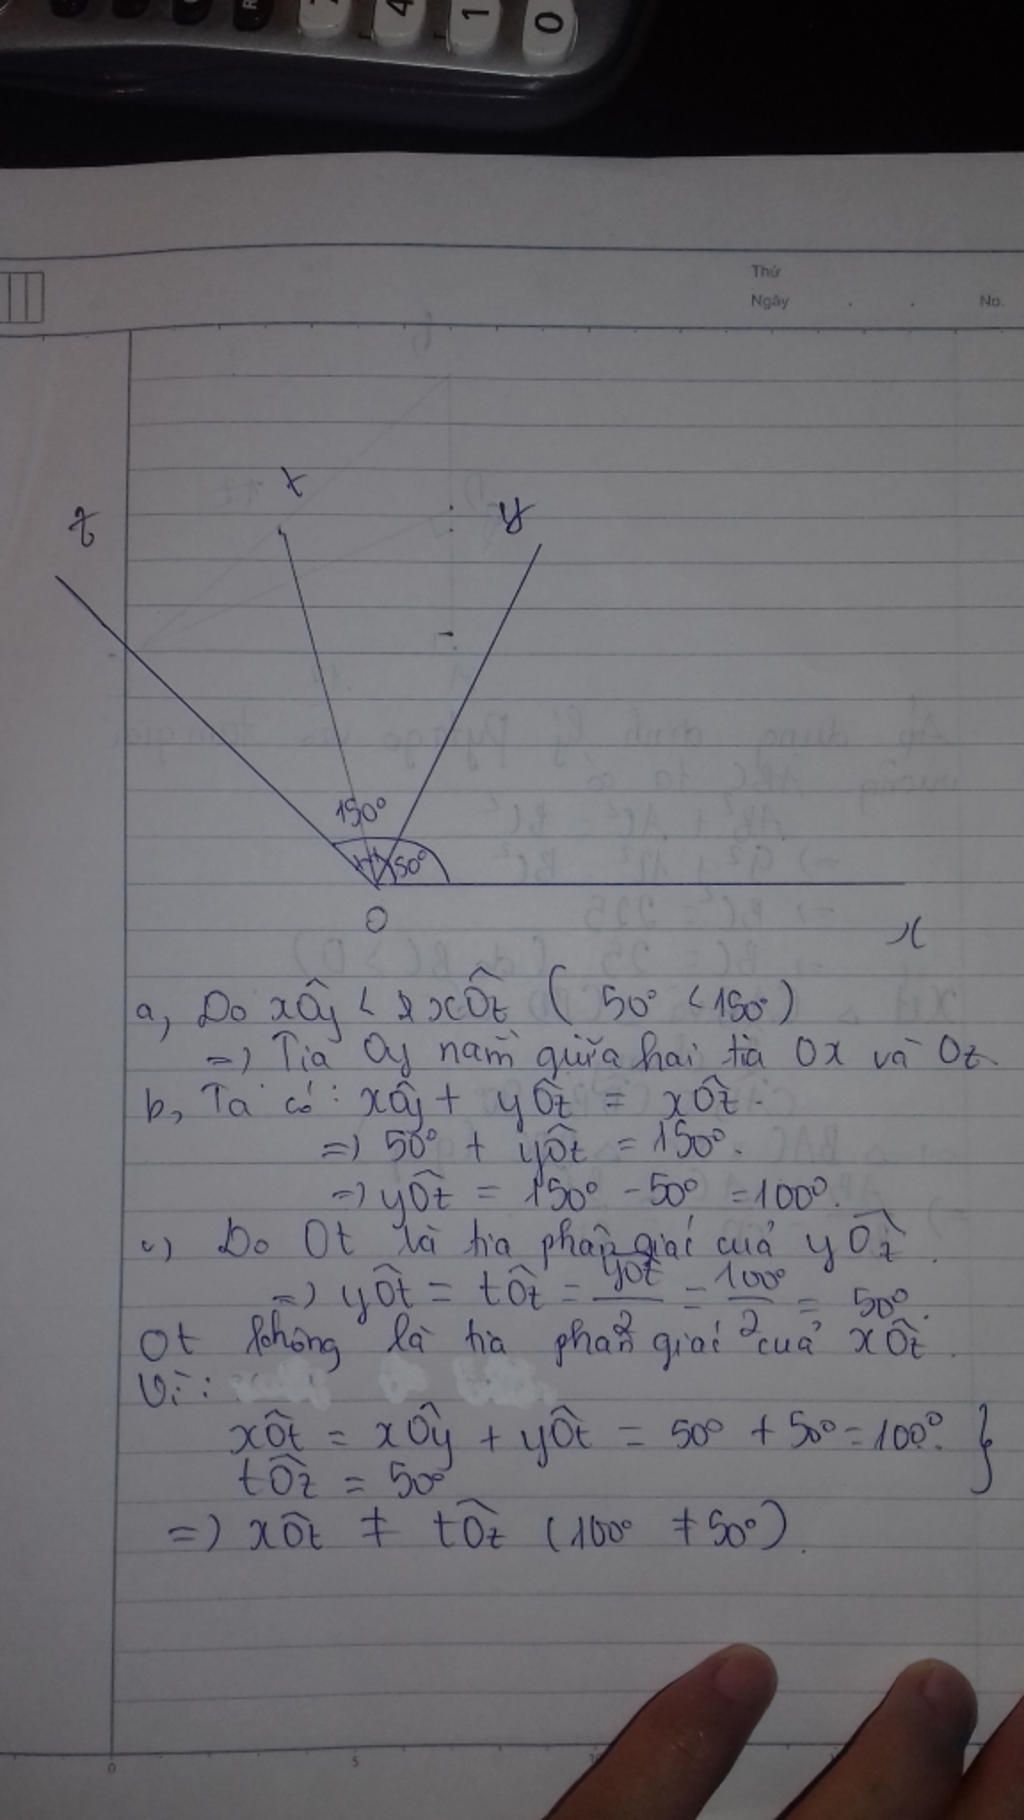 4
1
0
Thứ
Ngày . . No.
t
z
y
150°
50°
O
x
a, Do xÔy < xÔz ( 50° < 150°)
=> Tia Oy nằm giữa hai tia Ox và Oz
b, Ta có: xÔy + yÔz = xÔz.
=> 50° + yÔz = 150°.
=> yÔz = 150° - 50° = 100°.
c) Do Ot là tia phân giác của yÔz.
=> yÔt = tÔz = yÔz/2 = 100°/2 = 50°.
Ot không là tia phân giác của xÔz.
Vì:
xÔt = xÔy + yÔt = 50° + 50° = 100°. }
tÔz = 50°
=> xÔt ≠ tÔz (100° ≠ 50°).
0 5